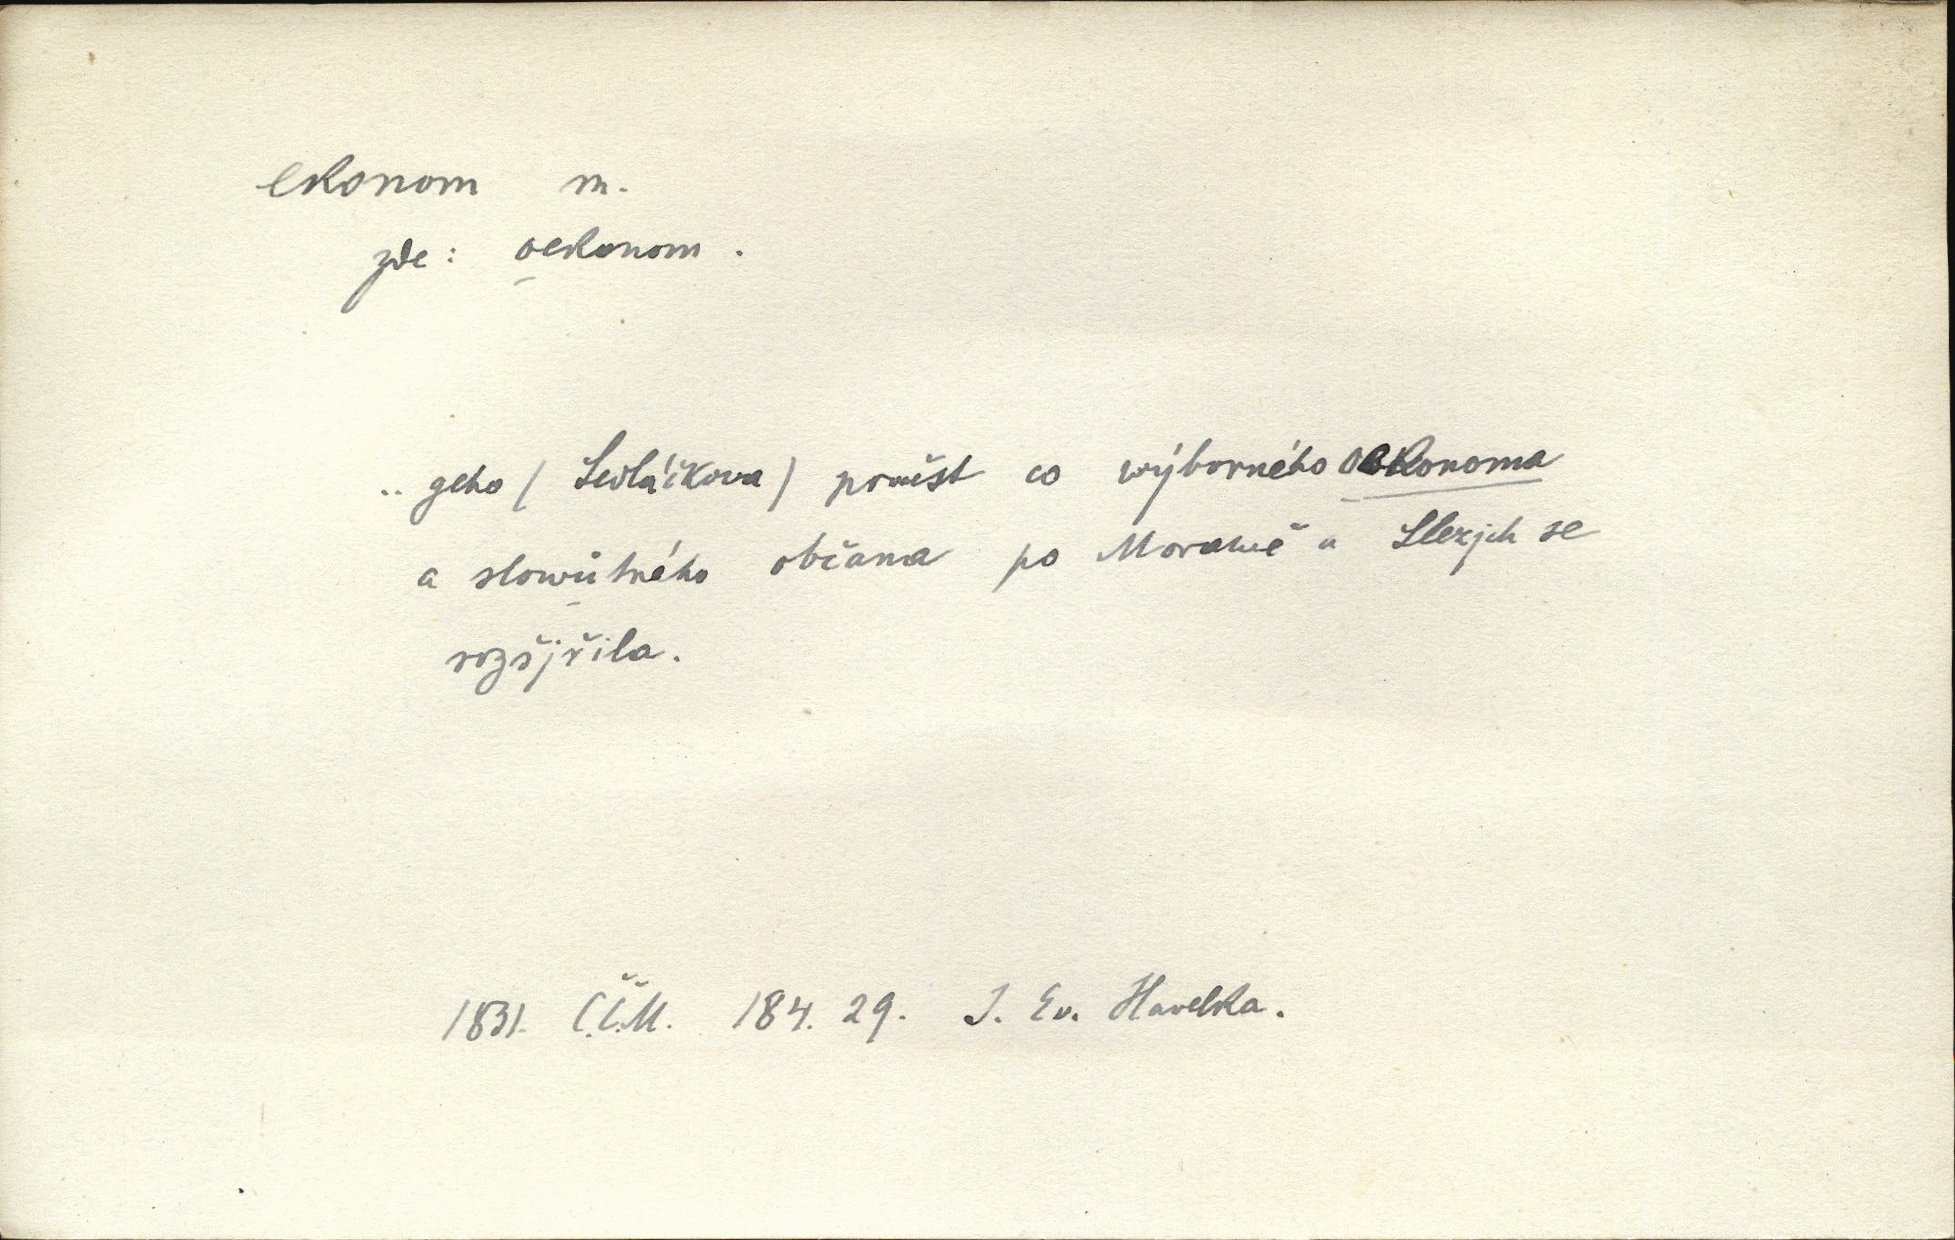 ekonom m.
zde: oekonom.
.. geho (Sedláčkova) powěst co wýborného oekonoma
a slowůtného občana po Morawě a Slezjch se
rozšjřila.
1831. Č.Č.M. 184. 29. J. Ev. Havelka.